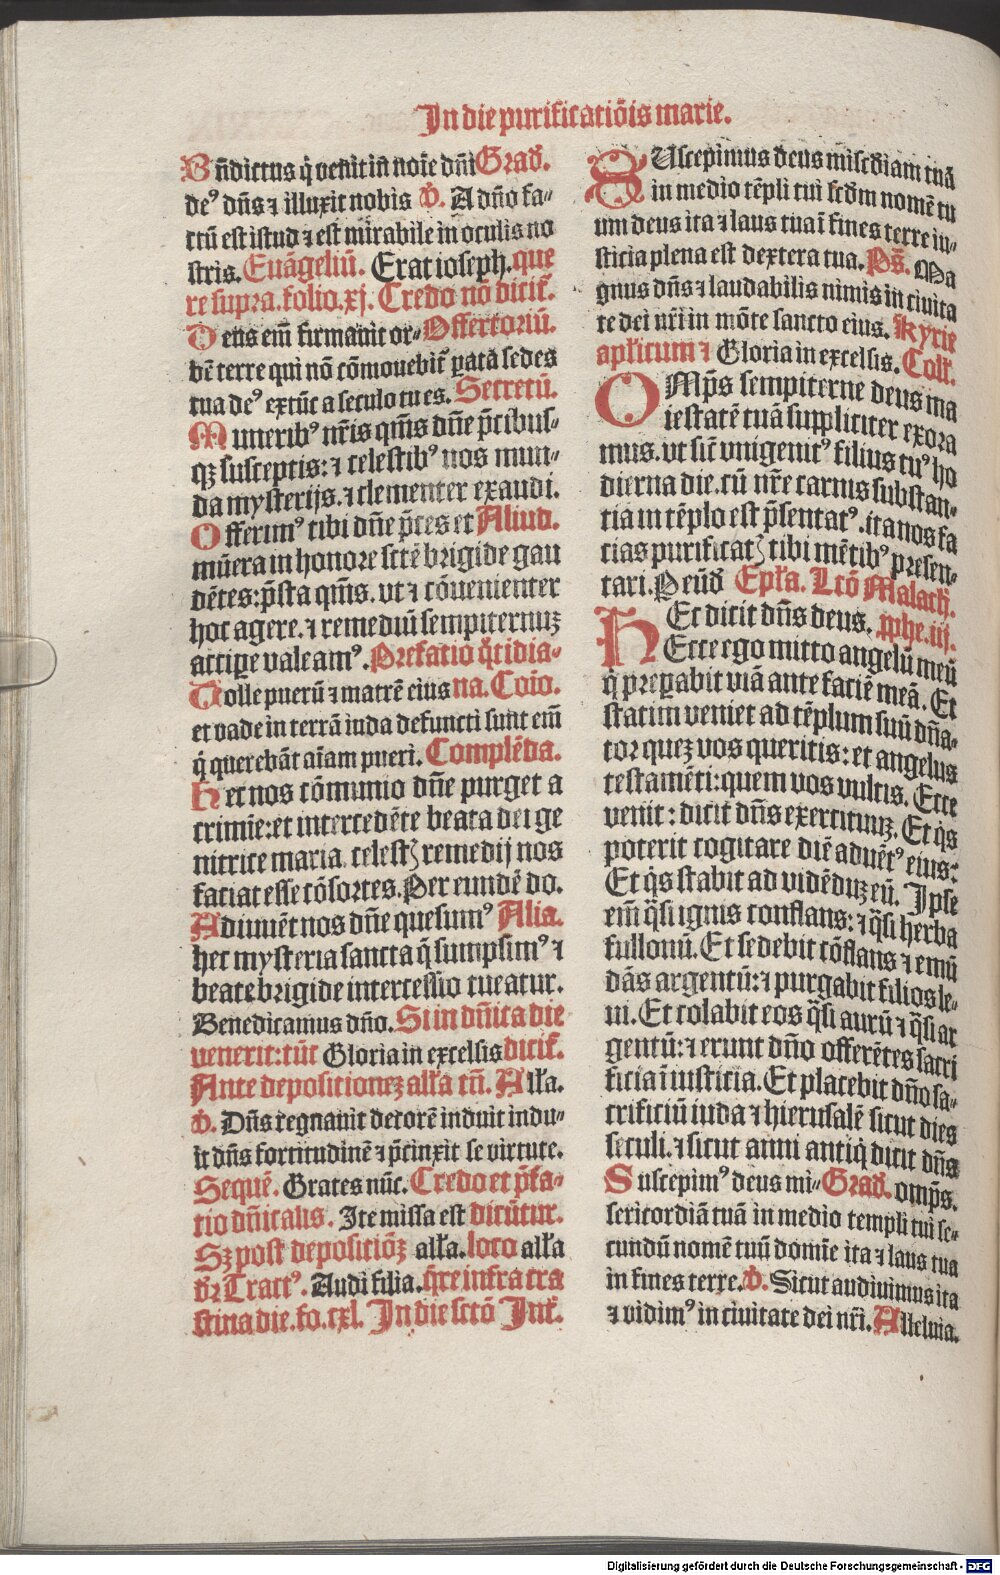 In die purificatiōis marie.
Bn̄dictus q̇ venit in noīe dn̄i Grad̄.
deꝰ dn̄s ⁊ illuxit nobis V̄. A dn̄o fa⸗
ctū est istud ⁊ est mirabile in oculis no
stris. Euāgeliū. Erat ioseph. que
re supra. folio. xj. Credo nō dicit̄.
Deus em̄ firmauit or⸗ Offertoriū.
bē terre qui nō cōmouebit̄ ꝑata sedes
tua deꝰ extūc a seculo tu es. Secretū.
Muneribꝰ nr̄is qm̄s dn̄e p̄cibus⸗
qꝫ susceptis: ⁊ celestibꝰ nos mun⸗
da mysterijs. ⁊ clementer exaudi.
Offerimꝰ tibi dn̄e p̄ces et Aliud.
mūera in honore sctē brigide gau
dētes: p̄sta qm̄s. vt ⁊ cōuenienter
hoc agere. ⁊ remediū sempiternuꝫ
accipe valeamꝰ. Prefatio q̄tidia⸗
Tolle puerū ⁊ matrē eius na. Cōio.
et vade in terrā iuda defuncti sunt em̄
q̇ querebāt aīam pueri. Complēda.
Hec nos cōmunio dn̄e purget a
crimīe: et intercedēte beata dei ge
nitrice maria. celestꝫ remedij nos
faciat esse cōsortes. Per eundē do.
Adiuuēt nos dn̄e quesumꝰ Alia.
hec mysteria sancta q̄ sumpsimꝰ ⁊
beate brigide intercessio tueatur.
Benedicamus dn̄o. Si in dn̄ica die
venerit: tūc Gloria in excelsis dicit̄.
Ante depositionez alla tm̄. Alla.
V̄. Dn̄s regnauit decorē induit indu⸗
it dn̄s fortitudinē ⁊ p̄cinxit se virtute.
Sequē. Grates nūc. Credo et p̄fa⸗
tio dn̄icalis. Ite missa est dicūtur.
Sꝫ post depositiōꝫ alla. loco alla
dr̄ Tractꝰ. Audi filia. q̄re infra cra
stina die. fo. cxl. In die sctō Int̄.
SUscepimus deus misc̄diam tuā
in medio tēpli tui scd̄m nomē tu
um deus ita ⁊ laus tua ī fines terre iu⸗
sticia plena est dextera tua. Ps̄. Ma
gnus dn̄s ⁊ laudabilis nimis in ciuita
te dei nr̄i in mōte sancto eius. Kyrie
apl̄icum ⁊ Gloria in excelsis. Coll̄.
OMp̄s sempiterne deus ma
iestatē tuā suppliciter exora
mus. vt sic̄ vnigenitꝰ filius tuꝰ ho
dierna die. cū nr̄e carnis substan⸗
tia in tēplo est p̄sentatꝰ. ita nos fa
cias purificatꝫ tibi mētibꝰ presen⸗
tari. P eūd̄ Epl̄a. Lcō Malach̄.
HEc dicit dn̄s deus. pp̄he. iij.
Ecce ego mitto angelū meū
q̇ preparabit viā ante faciē meā. Et
statim veniet ad tēplum suū dn̄a⸗
tor quez vos queritis: et angelus
testamēti: quem vos vultis. Ecce
venit: dicit dn̄s exercituuꝫ. Et q̇s
poterit cogitare diē aduētꝰ eius:
Et q̇s stabit ad vidēduz eū. Ipse
em̄ q̄si ignis conflans: ⁊ q̄si herba
fullonū. Et sedebit cōflans ⁊ emū
dās argentū: ⁊ purgabit filios le⸗
ui. Et colabit eos q̄si aurū ⁊ q̄si ar
gentū: ⁊ erunt dn̄o offerētes sacri
ficia ī iusticia. Et placebit dn̄o sa⸗
crificiū iuda ⁊ hierusalē sicut dies
seculi. ⁊ sicut anni antiq̇ dicit dn̄s
Suscepimꝰ deus mi⸗ Grad̄. omp̄s.
sericordiā tuā in medio templi tui se⸗
cundū nomē tuū domīe ita ⁊ laus tua
in fines terre. V̄. Sicut audiuimus ita
⁊ vidimꝰ in ciuitate dei nr̄i. Alleluia.
Digitalisierung gefördert durch die Deutsche Forschungsgemeinschaft - DFG